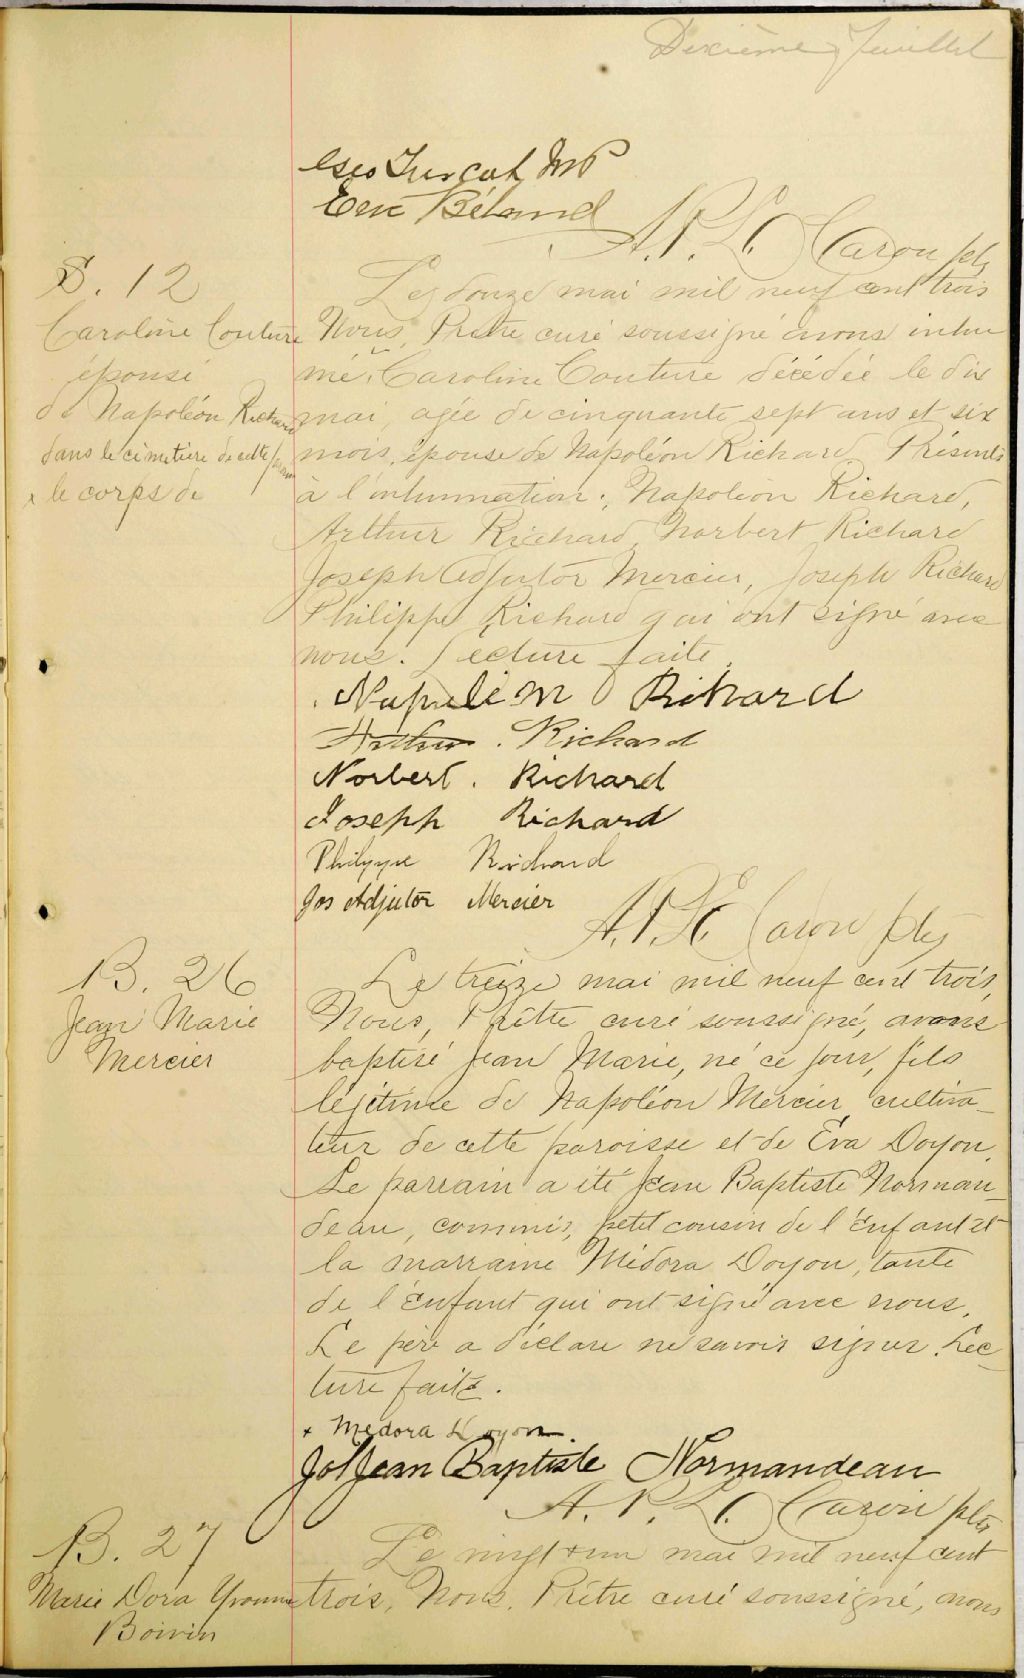 Dixième feuillet
Geo Turcot MP
Eém Béland
A. P. L. Caron ptr
S. 12
Caroline Couture
épouse
de Napoléon Richard
dans le cimetière de cette
x le corps de
Le douze mai mil neuf cent trois
Nous, Prêtre curé soussigné avons inhu
mé x Caroline Couture décédée le dix
mai, agée de cinquante sept ans et six
mois, épouse de Napoléon Richard Présents
à l'inhumation: Napoléon Richard,
Arthur Richard, Norbert Richard
Joseph Adjutor Mercier, Joseph Richard
Philippe Richard qui ont signé avec
nous. Lecture faite.
Napoléon Richard
Arthur Richard
Norbert. Richard
Joseph Richard
Philippe Richard
Jos Adjutor Mercier
A. P. L. Caron ptr
B. 26
Jean Marie
Mercier
Le treize mai mil neuf cent trois,
Nous, Prêtre curé soussigné, avons
baptisé Jean Marie, né ce jour, fils
légitime de Napoléon Mercier, cultiva-
teur de cette paroisse et de Eva Doyon.
Le parrain a été Jean Baptiste Norman-
deau, commis, petit cousin de l'Enfant et
la marraine Médora Doyon, tante
de l'Enfant qui ont signé avec nous.
Le père a déclaré ne savoir signer. Lec-
ture faite.
x Medora Doyon.
Jos Jean Baptiste Normandeau
A. P. L. Caron ptr
B. 27
Marie Dora Yvonne
Boivin
Le vingt et un mai mil neuf cent
trois, Nous, Prêtre curé soussigné, avons